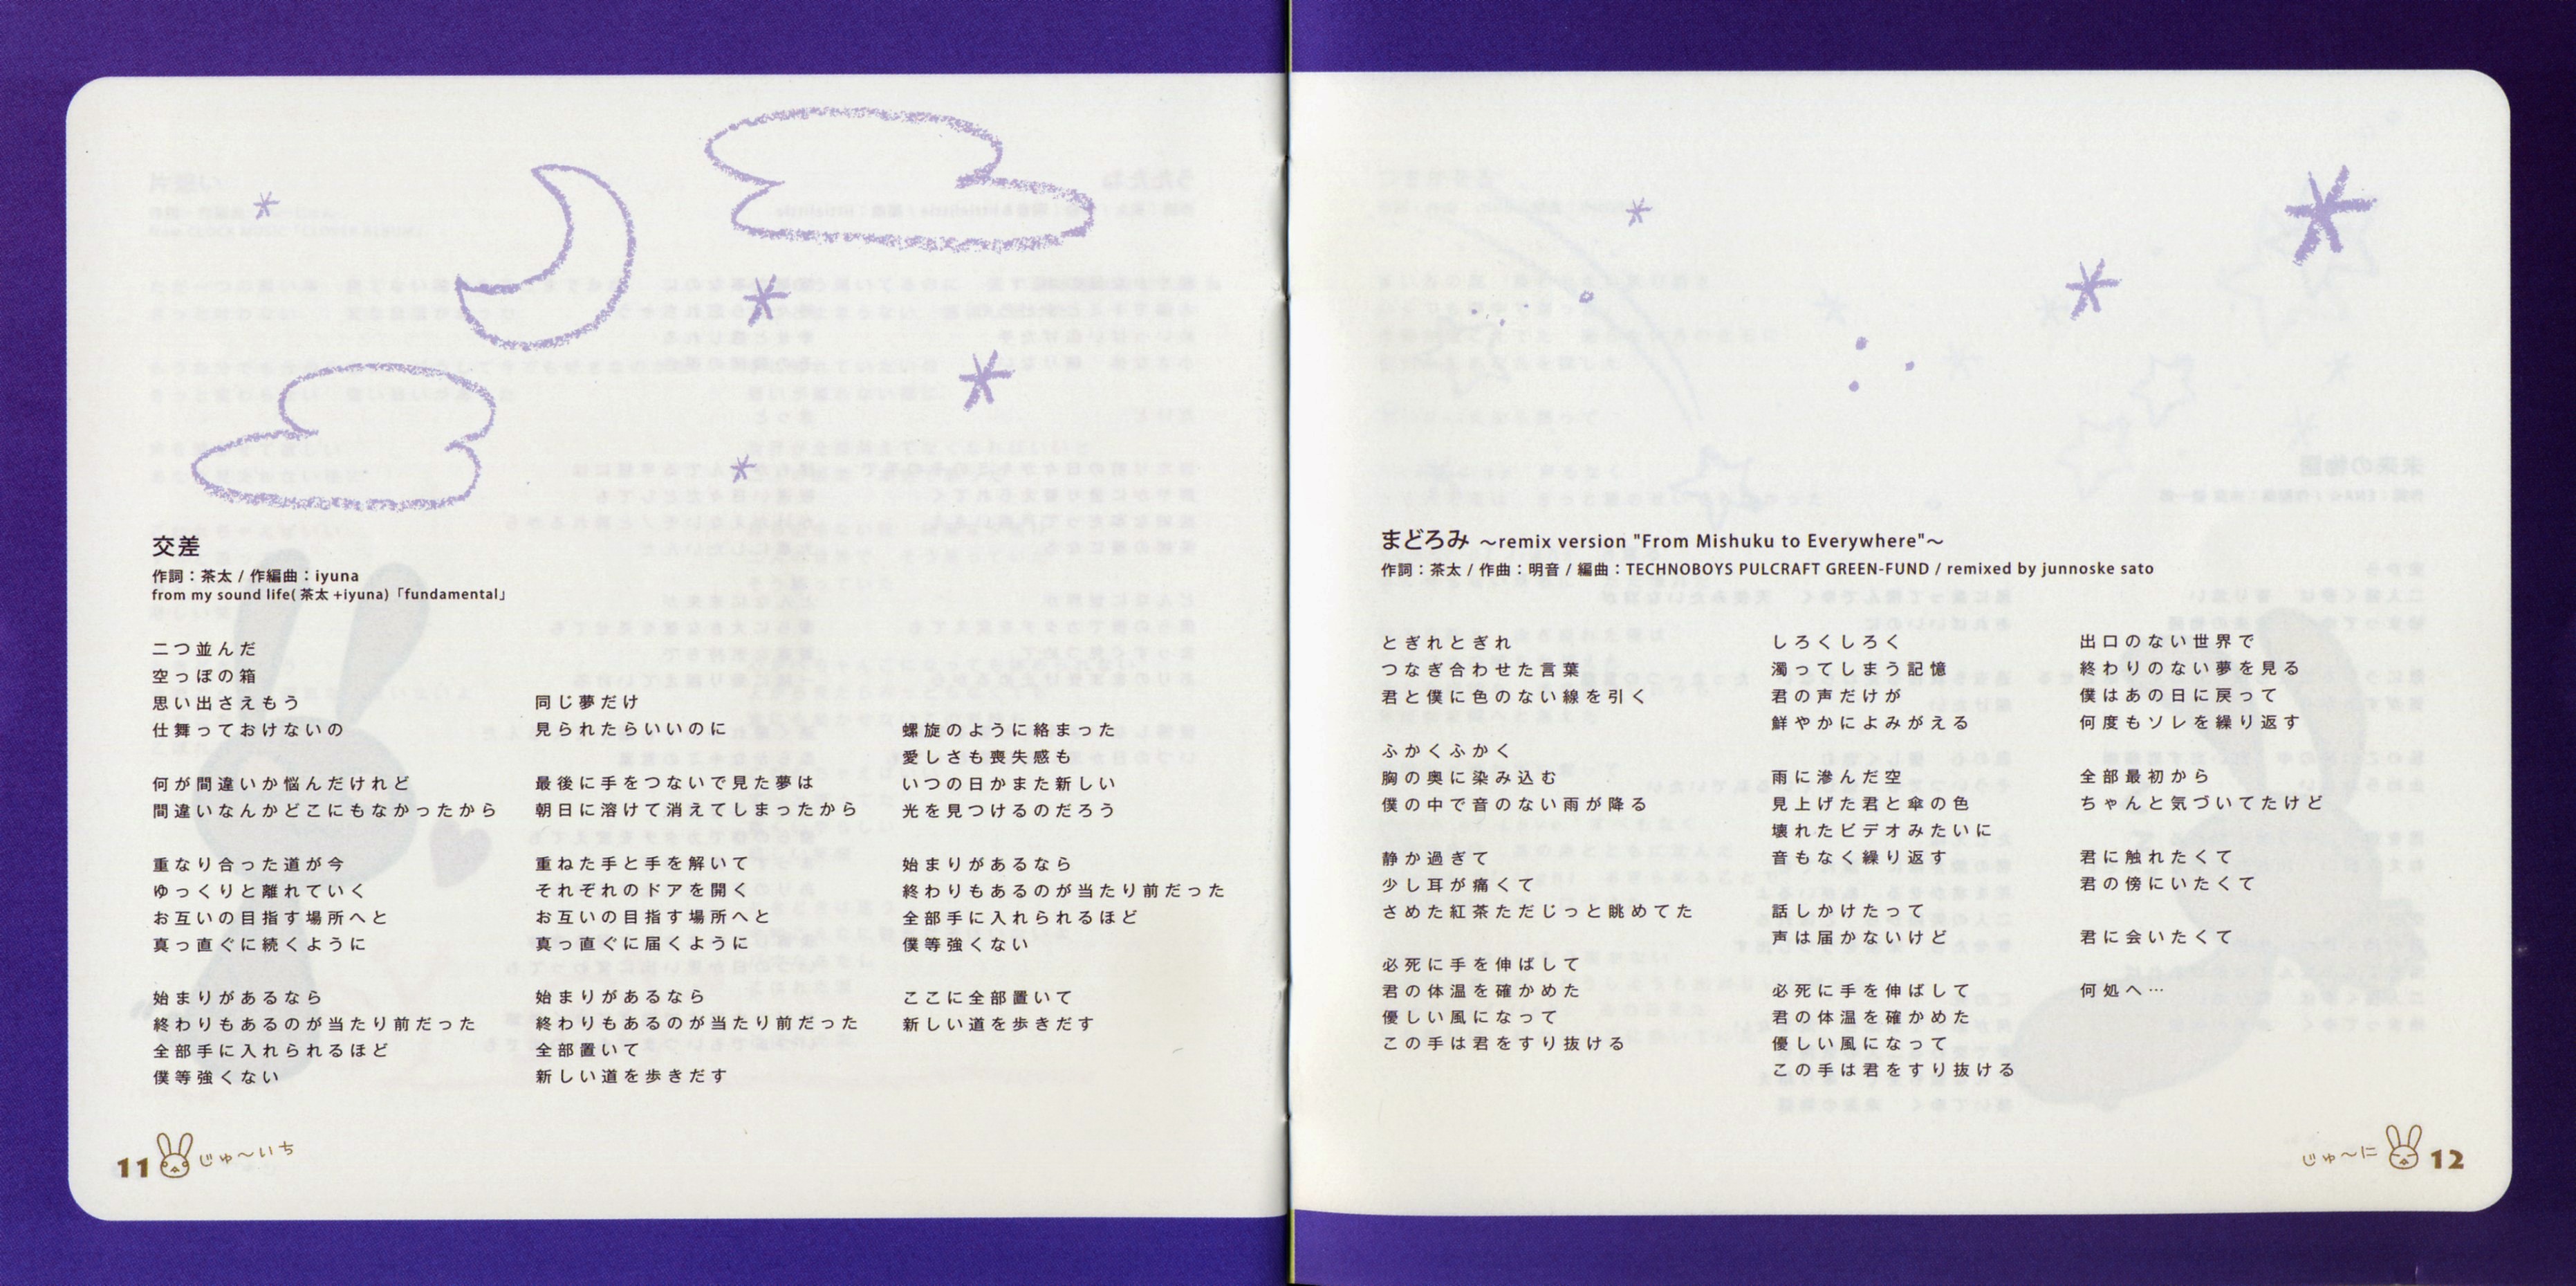 交差
作詞：茶太 / 作編曲：iyuna
from my sound life( 茶太 +iyuna)「fundamental」
二つ並んだ
空っぽの箱
思い出さえもう
仕舞っておけないの
何が間違いか悩んだけれど
間違いなんかどこにもなかったから
重なり合った道が今
ゆっくりと離れていく
お互いの目指す場所へと
真っ直ぐに続くように
始まりがあるなら
終わりもあるのが当たり前だった
全部手に入れられるほど
僕等強くない
同じ夢だけ
見られたらいいのに
最後に手をつないで見た夢は
朝日に溶けて消えてしまったから
重ねた手と手を解いて
それぞれのドアを開く
お互いの目指す場所へと
真っ直ぐに届くように
始まりがあるなら
終わりもあるのが当たり前だった
全部置いて
新しい道を歩きだす
螺旋のように絡まった
愛しさも喪失感も
いつの日かまた新しい
光を見つけるのだろう
始まりがあるなら
終わりもあるのが当たり前だった
全部手に入れられるほど
僕等強くない
ここに全部置いて
新しい道を歩きだす
11 じゅ～いち
まどろみ ～remix version "From Mishuku to Everywhere"～
作詞：茶太 / 作曲：明音 / 編曲：TECHNOBOYS PULCRAFT GREEN-FUND / remixed by junnoske sato
とぎれとぎれ
つなぎ合わせた言葉
君と僕に色のない線を引く
ふかくふかく
胸の奥に染み込む
僕の中で音のない雨が降る
静か過ぎて
少し耳が痛くて
さめた紅茶ただじっと眺めてた
必死に手を伸ばして
君の体温を確かめた
優しい風になって
この手は君をすり抜ける
しろくしろく
濁ってしまう記憶
君の声だけが
鮮やかによみがえる
雨に滲んだ空
見上げた君と傘の色
壊れたビデオみたいに
音もなく繰り返す
話しかけたって
声は届かないけど
必死に手を伸ばして
君の体温を確かめた
優しい風になって
この手は君をすり抜ける
出口のない世界で
終わりのない夢を見る
僕はあの日に戻って
何度もソレを繰り返す
全部最初から
ちゃんと気づいてたけど
君に触れたくて
君の傍にいたくて
君に会いたくて
何処へ…
じゅ～に 12